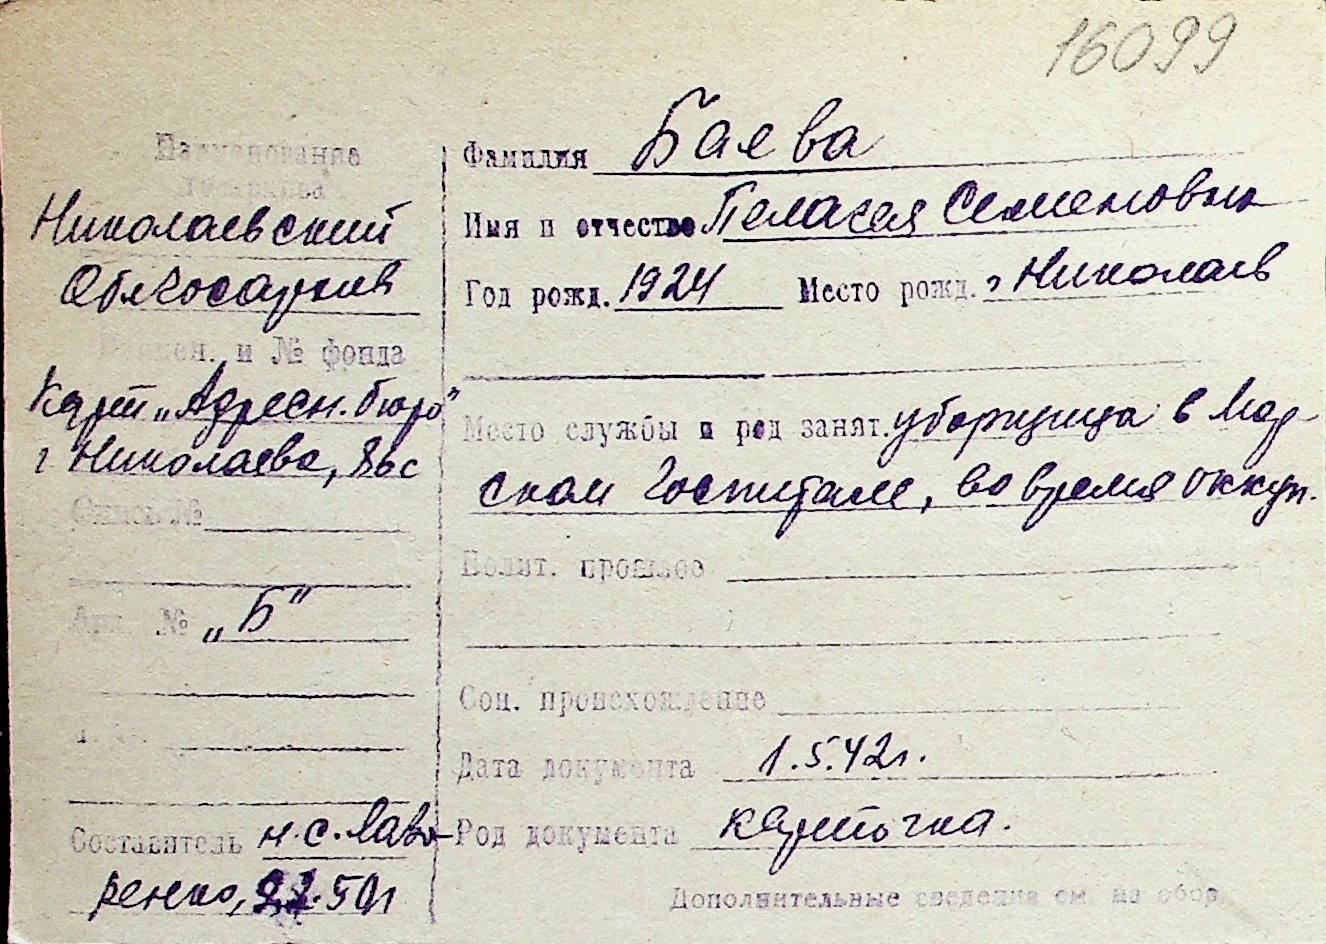 16099
Наименование
Госархива
Николаевский
Облгосархив
Наимен. и № фонда
Карт „Адресн. бюро"
г Николаева,
Опись №
Арх. № „Б"
Составитель н.с. Лаво-
ренко, 50г
Фамилия Баева
Имя и отчество Пелагея Семеновна
Год рожд. 1924 Место рожд. г Николаев
Место службы и род занят. уборщица в Мор-
ском Госпитале, во время оккуп.
Полит. прошлое
Соц. происхождение
Дата документа 1.5.42г.
Род документа карточка.
Дополнительные сведения см. на обор.